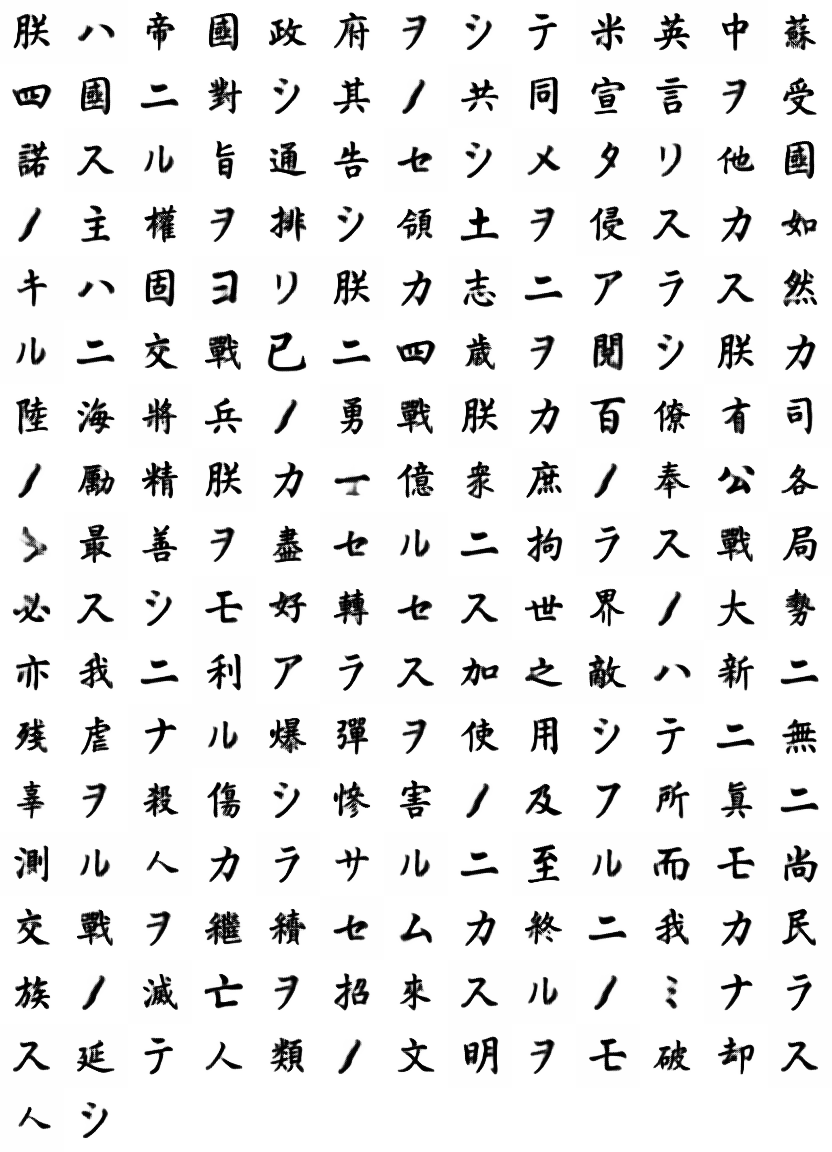 朕ハ帝國政府ヲシテ米英中蘇
四國ニ對シ其ノ共同宣言ヲ受
諾スル旨通告セシメタリ他國
ノ主權ヲ排シ領土ヲ侵スカ如
キハ固ヨリ朕カ志ニアラス然
ルニ交戰已ニ四歳ヲ閲シ朕カ
陸海將兵ノ勇戰朕カ百僚有司
ノ勵精朕カ一億衆庶ノ奉公各
ゝ最善ヲ盡セルニ拘ラス戰局
必スシモ好轉セス世界ノ大勢
亦我ニ利アラス加之敵ハ新ニ
残虐ナル爆彈ヲ使用シテニ無
辜ヲ殺傷シ慘害ノ及フ所眞ニ
測ル人カラサルニ至ル而モ尚
交戰ヲ繼續セムカ終ニ我カ民
族ノ滅亡ヲ招來スルノミナラ
ス延テ人類ノ文明ヲモ破却ス
人シ